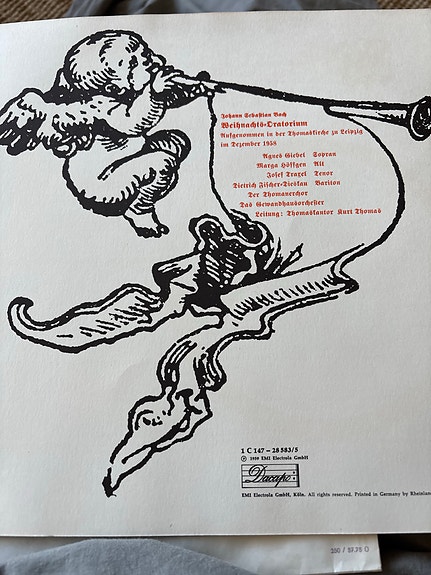 Johann Sebastian Bach
Weihnachts-Oratorium
Aufgenommen in der Thomaskirche zu Leipzig
im Dezember 1958
Agnes Giebel Sopran
Marga Höffgen Alt
Josef Traxel Tenor
Dietrich Fischer-Dieskau Bariton
Der Thomanerchor
Das Gewandhausorchester
Leitung: Thomaskantor Kurt Thomas
1 C 147 – 28 583/5
Ⓟ 1959 EMI Electrola GmbH
Dacapo
EMI Electrola GmbH, Köln. All rights reserved. Printed in Germany by Rheinlan